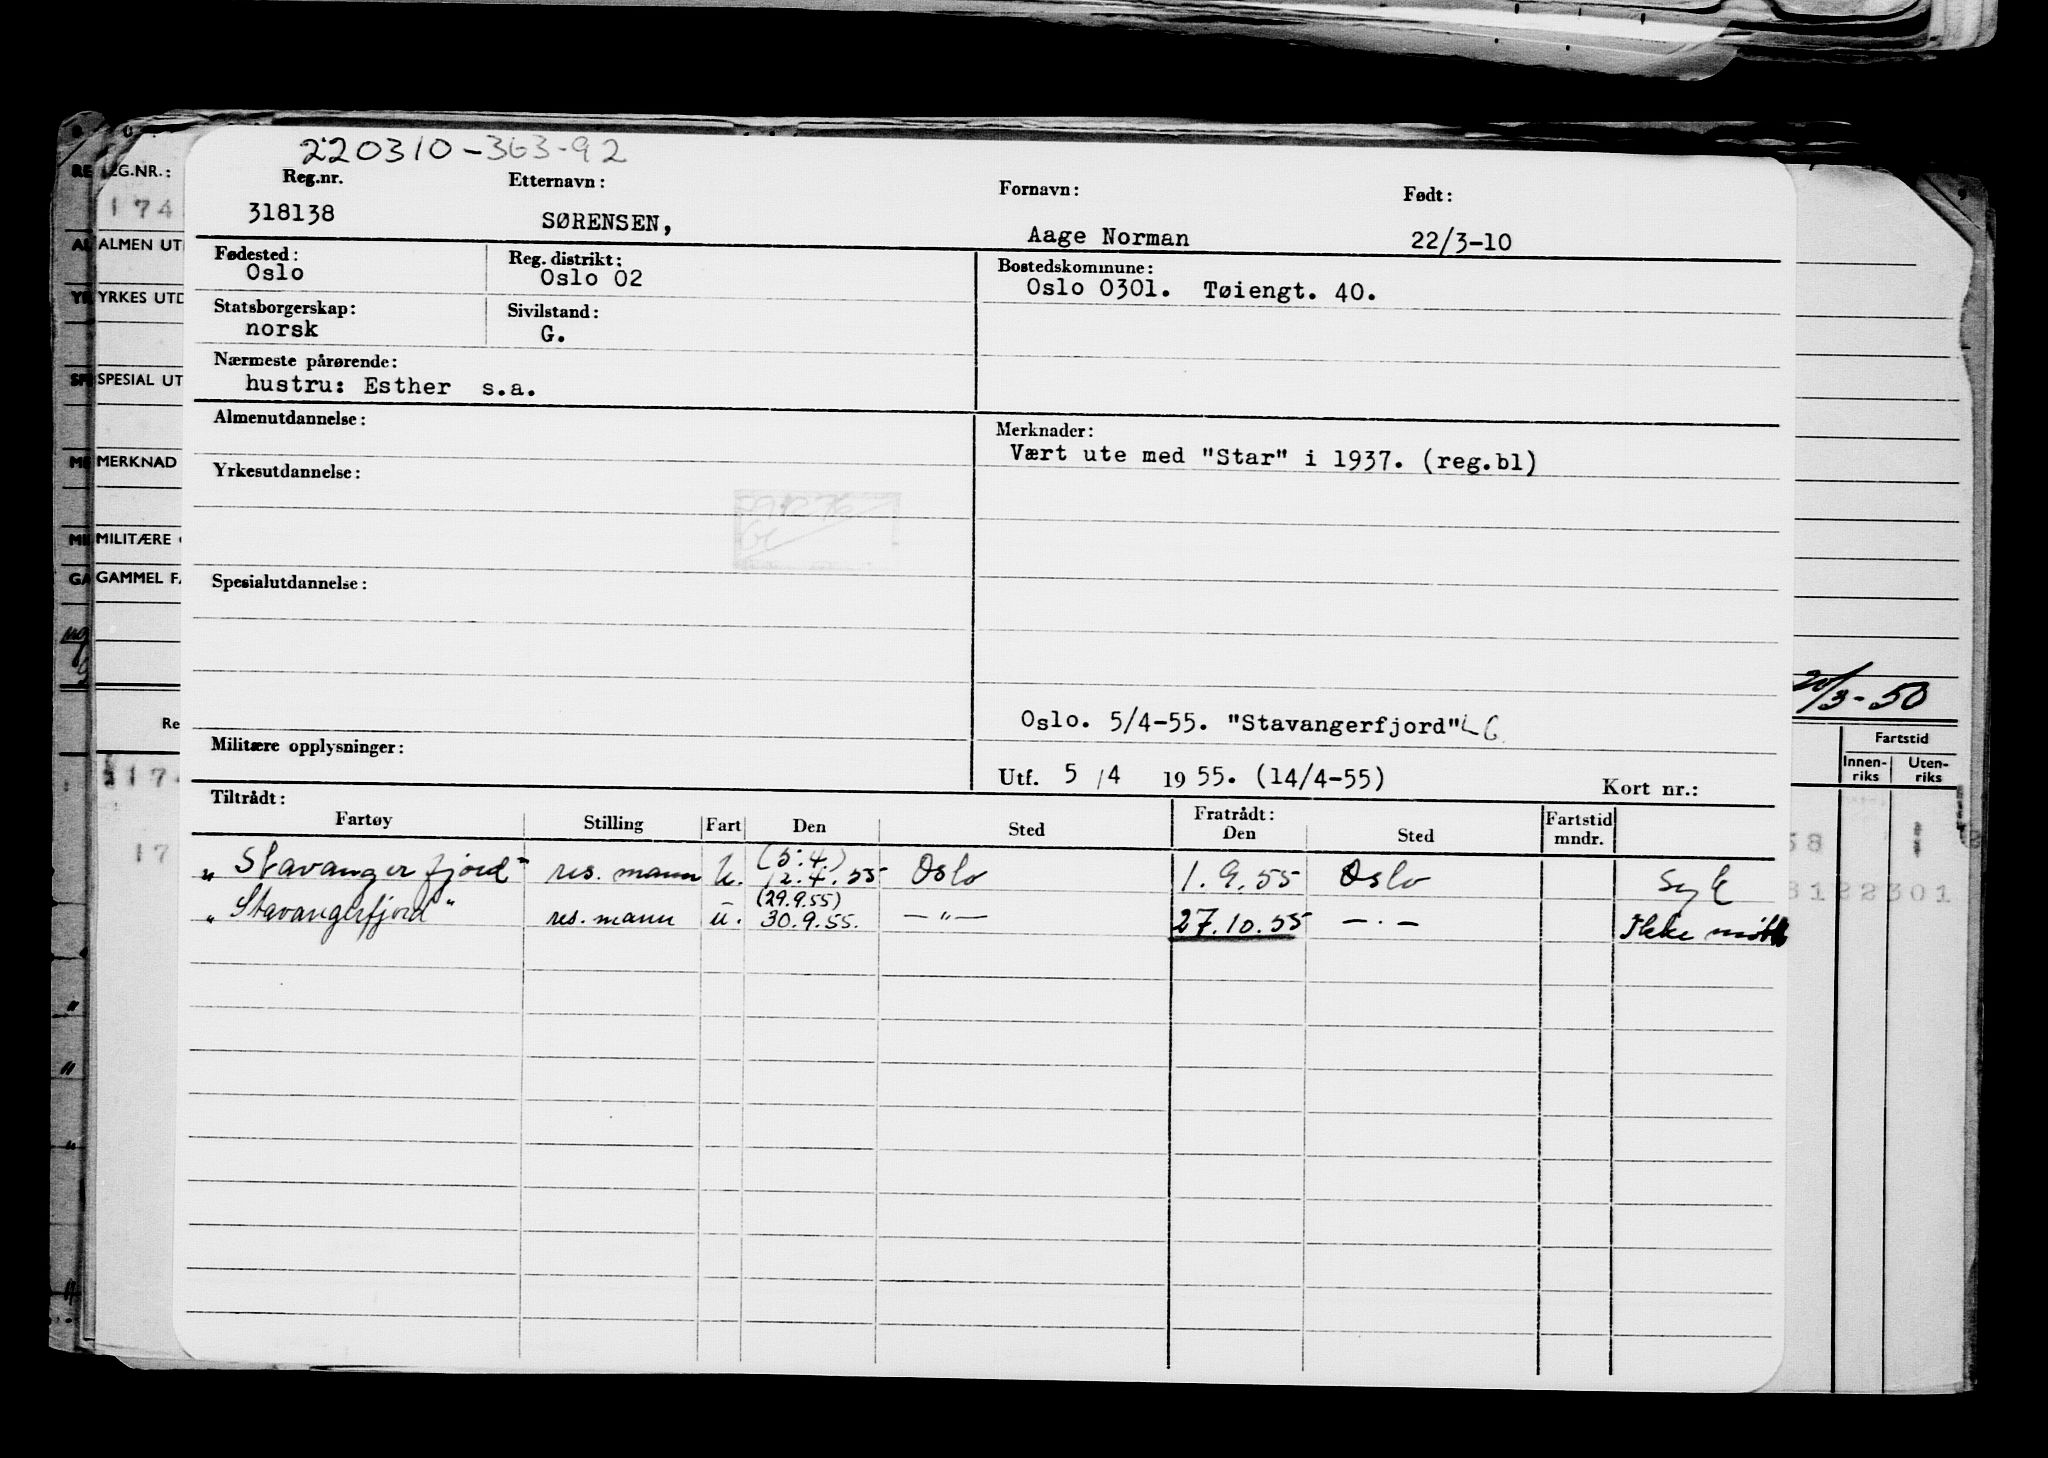 220310-363-92
Reg.nr. Etternavn: Fornavn: Født:
318138 SØRENSEN, Aage Norman 22/3-10
Fødested: Reg. distrikt: Bostedskommune:
Oslo Oslo 02 Oslo 0301. Tøiengt. 40.
Statsborgerskap: Sivilstand:
norsk G.
Nærmeste pårørende:
hustru: Esther s.a.
Almenutdannelse: Merknader:
Vært ute med "Star" i 1937. (reg.bl)
Yrkesutdannelse:
Spesialutdannelse:
Oslo. 5/4-55. "Stavangerfjord"
Militære opplysninger:
Utf. 5/4 1955. (14/4-55) Kort nr.:
Tiltrådt: Fratrådt:
Fartøy Stilling Fart Den Sted Den Sted Fartstid mndr.
(5.4.)
"Stavangerfjord" res. mann u. 12.4.55 Oslo 1.9.55 Oslo Syk
(29.9.55)
"Stavangerfjord" res. mann u. 30.9.55. —"— 27.10.55 —"— Ikke møtt
REG.NR.:
174
ALMEN UT
YRKES UTD
SPESIAL UT
MERKNAD
MILITÆRE
GAMMEL FA
Re
17
20/3-50
Fartstid
Innen-riks Uten-riks